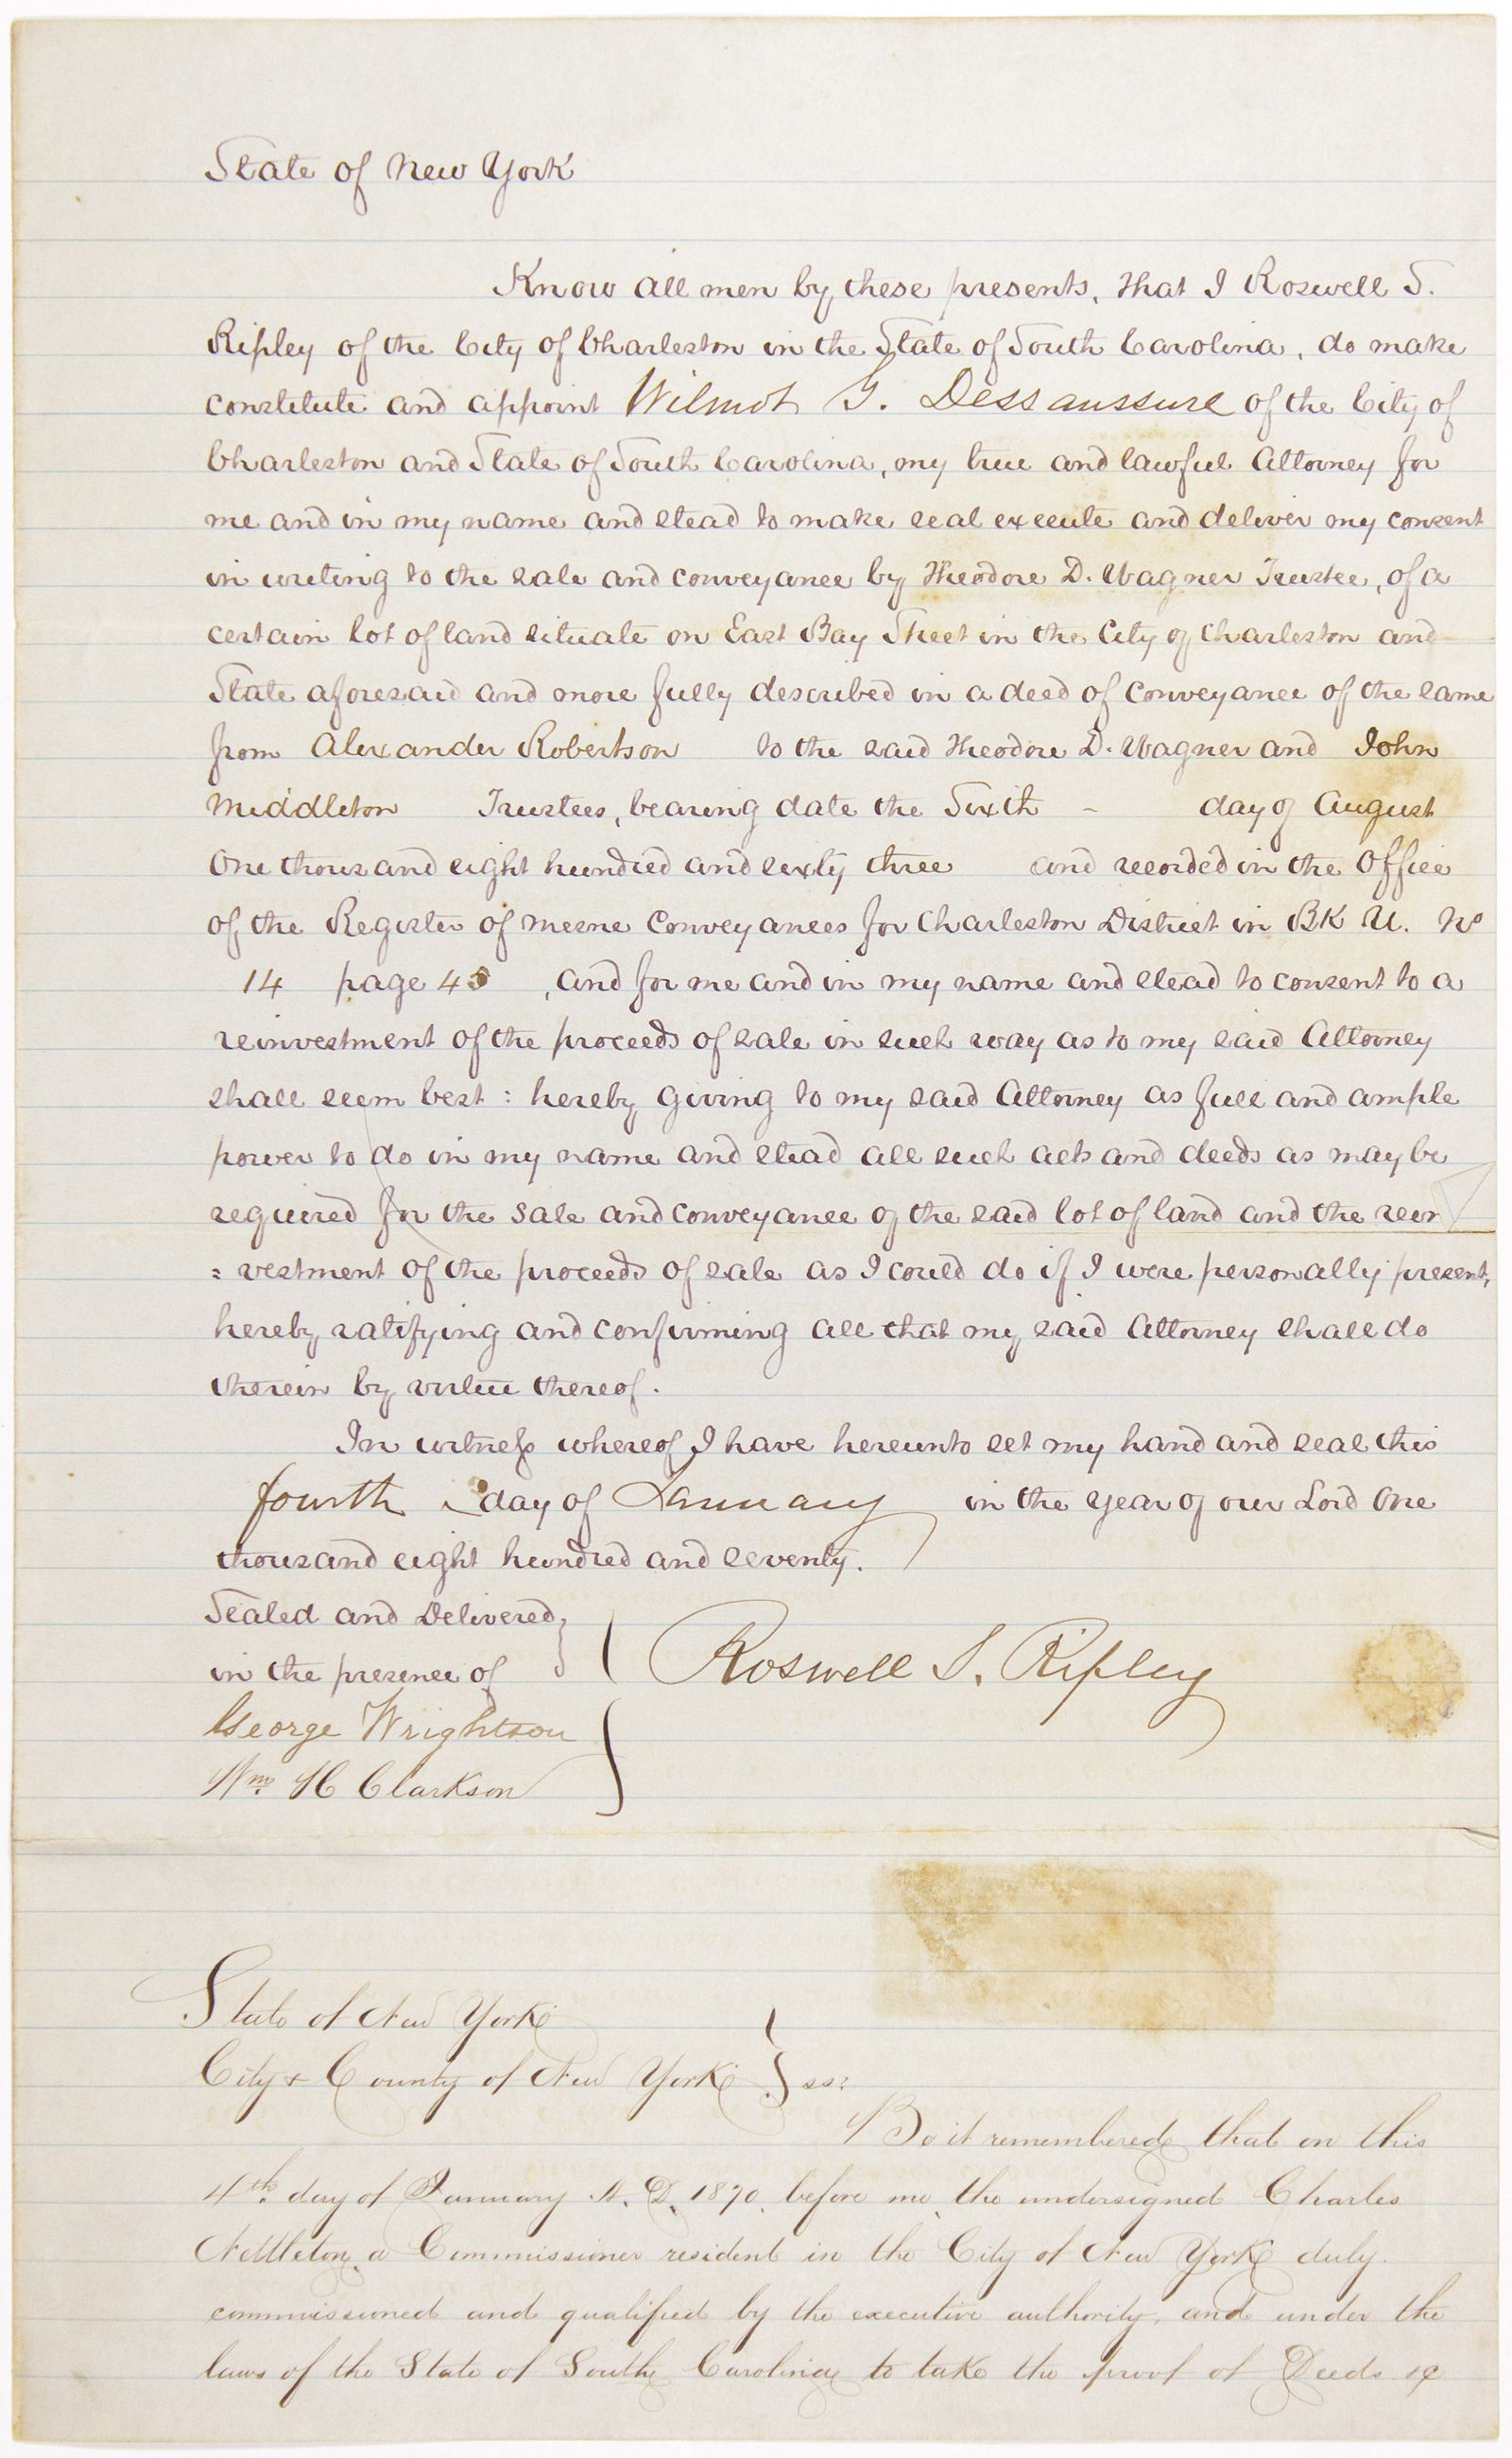 State of New York
Know all men by these presents, that I Roswell S.
Ripley of the City of Charleston in the State of South Carolina, do make
constitute and appoint Wilmot G. Dessaussure of the City of
Charleston and State of South Carolina, my true and lawful Attorney for
me and in my name and stead to make seal execute and deliver my consent
in writing to the sale and conveyance by Theodore D. Wagner Trustee, of a
certain lot of land situate on East Bay Street in the City of Charleston and
State aforesaid and more fully described in a deed of conveyance of the same
from Alexander Robertson to the said Theodore D. Wagner and John
Middleton Trustees, bearing date the Sixth - day of August
One thousand eight hundred and sixty three and recorded in the Office
of the Register of Mesne Conveyances for Charleston District in BK U. No
14 page 45, and for me and in my name and stead to consent to a
reinvestment of the proceeds of sale in such way as to my said Attorney
shall seem best : hereby giving to my said Attorney as full and ample
power to do in my name and stead all such acts and deeds as may be
required for the sale and conveyance of the said lot of land and the rein
= vestment of the proceeds of sale as I could do if I were personally present,
hereby ratifying and confirming all that my said Attorney shall do
therein by virtue thereof.
In witness whereof I have hereunto set my hand and seal this
fourth day of January in the year of our Lord One
thousand eight hundred and seventy.
Sealed and Delivered
in the presence of
Roswell S. Ripley
George Wrightson
Wm H Clarkson
State of New York
City & County of New York } ss:
Be it remembered that on this
4th day of January A. D. 1870, before me, the undersigned Charles
Nettleton a Commissioner resident in the City of New York duly
commissioned and qualified by the executive authority, and under the
laws of the State of South Carolina to take the proof of Deeds &c